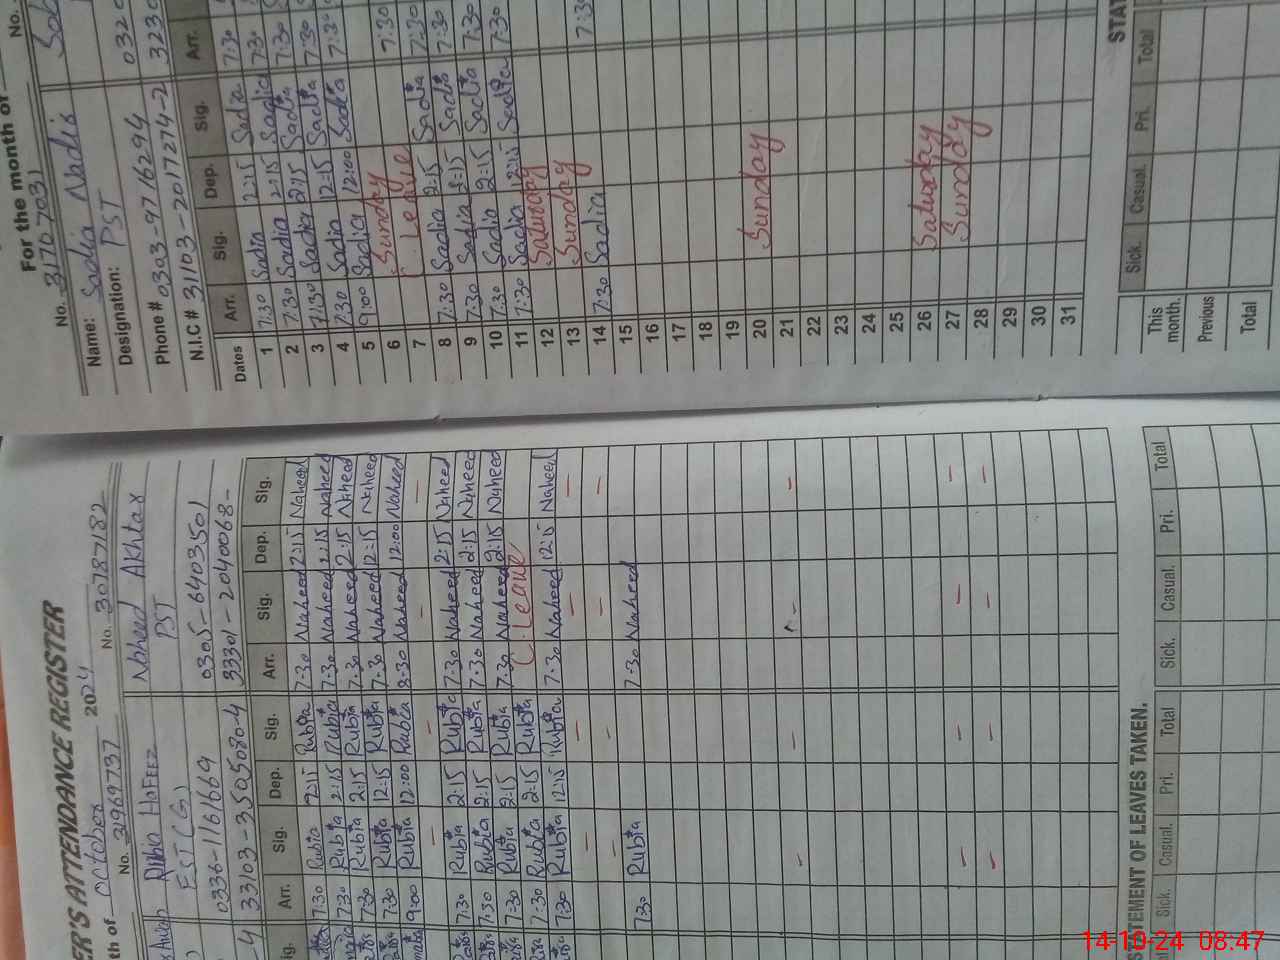 TEACHER'S ATTENDANCE REGISTER
October 2024
No. 31969737
Rubia Hafeez
EST (G)
0336-1161669
33103-3505080-4
Arr. Sig. Dep. Sig.
7:30 Rubia 2:15 Rubia
7:30 Rubia 2:15 Rubia
7:30 Rubia 2:15 Rubia
7:30 Rubia 12:15 Rubia
9:00 Rubia 12:00 Rubia
7:30 Rubia 2:15 Rubia
7:30 Rubia 2:15 Rubia
7:30 Rubia 2:15 Rubia
7:30 Rubia 2:15 Rubia
7:30 Rubia 12:15 Rubia
7:30 Rubia
No. 30787182
Naheed Akhtar
PST
0305-6403501
33301-2040068-
Arr. Sig. Dep. Sig.
7:30 Naheed 2:15 Naheed
7:30 Naheed 2:15 Naheed
7:30 Naheed 2:15 Naheed
7:30 Naheed 12:15 Naheed
8:30 Naheed 12:00 Naheed
7:30 Naheed 2:15 Naheed
7:30 Naheed 2:15 Naheed
7:30 Naheed 2:15 Naheed
C. Leave
7:30 Naheed 12:15 Naheed
7:30 Naheed
STATEMENT OF LEAVES TAKEN.
Sick. Casual. Pri. Total
Sick. Casual. Pri. Total
For the month of
No. 31707031
Name: Sadia Nadis
Designation: PST
Phone # 0303-9716294
N.I.C # 31103-2017274-2
Dates Arr. Sig. Dep. Sig. Arr.
1 7:30 Sadia 2:15 Sadia 7:30
2 7:30 Sadia 2:15 Sadia 7:30
3 7:30 Sadia 2:15 Sadia 7:30
4 7:30 Sadia 12:15 Sadia 7:30
5 9:00 Sadia 12:00 Sadia 7:30
6 Sunday
7 C. Leave 7:30
8 7:30 Sadia 2:15 Sadia 7:30
9 7:30 Sadia 2:15 Sadia 7:30
10 7:30 Sadia 2:15 Sadia 7:30
11 7:30 Sadia 12:15 Sadia 7:30
12 Saturday
13 Sunday
14 7:30 Sadia 7:30
15
16
17
18
19
20 Sunday
21
22
23
24
25
26 Saturday
27 Sunday
28
29
30
31
STAT
Sick. Casual. Pri. Total
This month.
Previous
Total
14-10-24 08:47